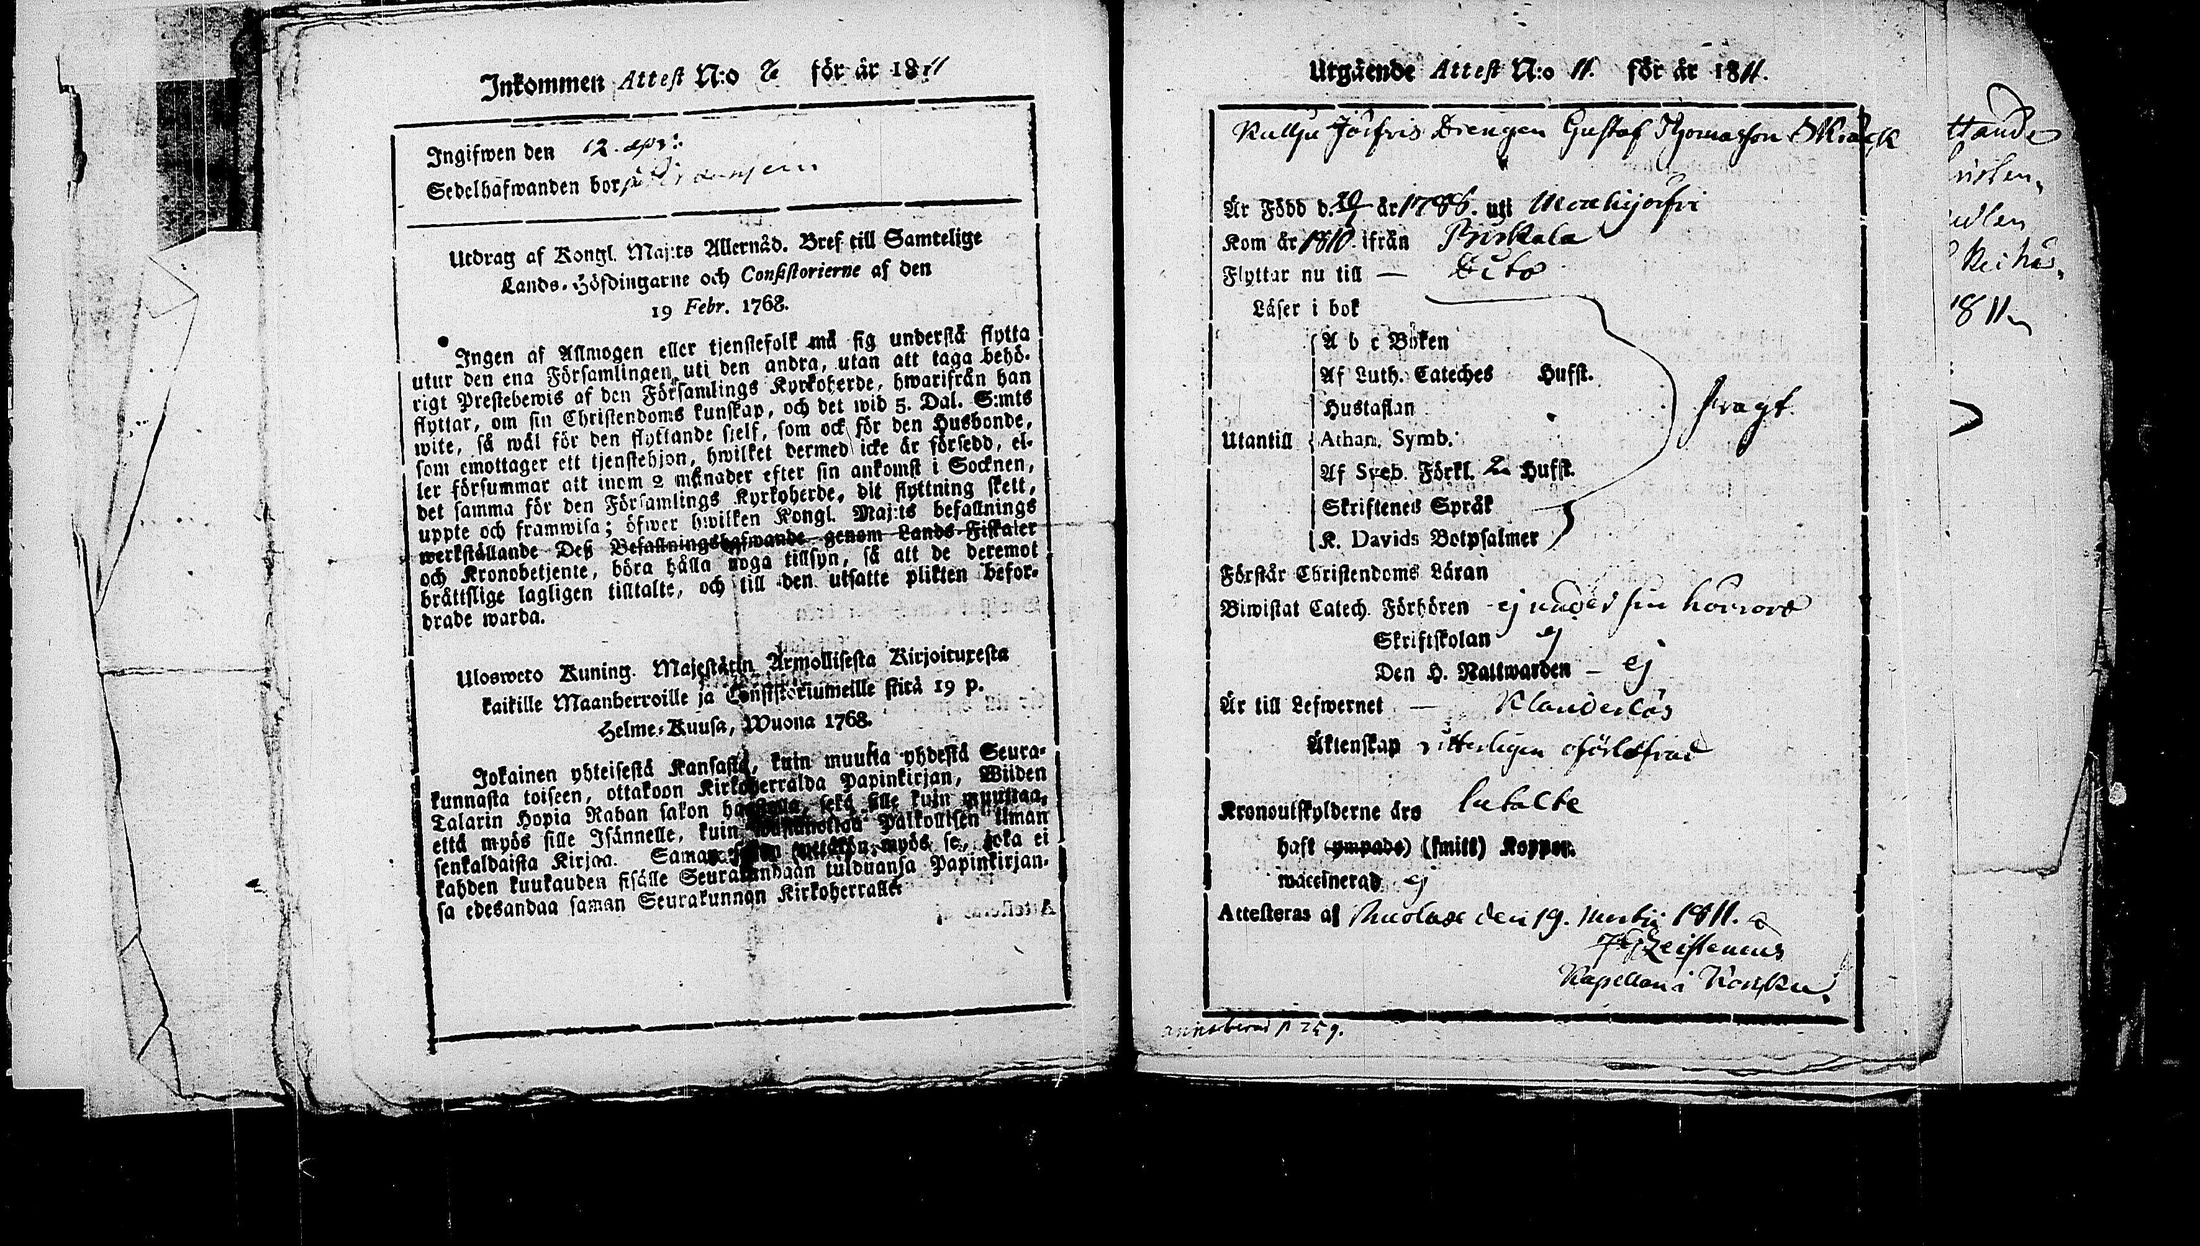 Inkommen Attest N:o för år 1811
Ingifwen den 12. apr:
Sedelhafwanden bor på
Utdrag af Kongl. Maj:ts Allernåd. Bref till Samtelige
Lands-Höfdingarne och Consistorierne af den
19 Febr. 1768.
Ingen af Allmogen eller tjenstefolk må sig understå flytta
utur den ena Församlingen uti den andra, utan att taga behö-
rigt Prestebewis af den Församlings Kyrkoherde, hwarifrån han
flyttar, om sin Christendoms kunskap, och det wid 5. Dal. S:mts
wite, så wäl för den flyttande sjelf, som ock för den Husbonde,
som emottager ett tjenstehjon, hwilket dermed icke är försedd, el-
ler försummar att inom 2 månader efter sin ankomst i Socknen,
det samma för den Församlings Kyrkoherde, dit flyttning skett,
uppte och framwisa; öfwer hwilken Kongl. Maj:ts befallnings
werkställande Deß Befallningshafwande genom Lands-Fiskaler
och Kronobetjente, böra hålla noga tillsyn, så att de deremot
bråttslige lagligen tilltalte, och till den utsatte plikten befor-
drade warda.
Ulosweto Kuning. Majestätin Armollisesta Kirjoituxesta
kaikille Maanherroille ja Consistoriumeille siitä 19 p.
Helme-Kuusa, Wuona 1768.
Jokainen yhteisestä Kansasta, kuin muutta yhdestä Seura-
kunnasta toiseen, ottakoon Kirkoherralda Papinkirjan, Wiiden
Talarin Hopia Rahan sakon sekä sille kuin muuttaa,
että myös sille Isännelle, kuin Palkollisen ilman
senkaldaista Kirjaa. Saman myös se, joka ei
kahden kuukauden sisälle Seurakundaan tulduansa Papinkirjan-
sa edesandaa saman Seurakunnan Kirkoherralle
Utgående Attest N:o 11. för år 1811.
Kullju Jäifris Drengen Gustaf Thomasson
Är Född d. år 1786. uti
Kom år 1810. ifrån Birkala
Flyttar nu till — Dito
Läser i bok
A b c Boken
Af Luth. Cateches Hufst.
Hustaflan
Utantill Athan. Symb.
Af Sveb. Förkl. 2 Hufst.
Skriftenes Språk
K. Davids Botpsalmer
swagt
Förstår Christendoms Läran
Biwistat Catech. Förhören - ej under sin härvaro
Skriftskolan ej
Den H. Nattwarden — ej
Är till Lefwernet — Klanderlös
Äktenskap witterligen oförlofwad
Kronoutskylderne äro betalte
haft (ympade) (smitt) Koppor.
waccinerad ej
Attesteras af den 19. Martii 1811. a
Kapellan i